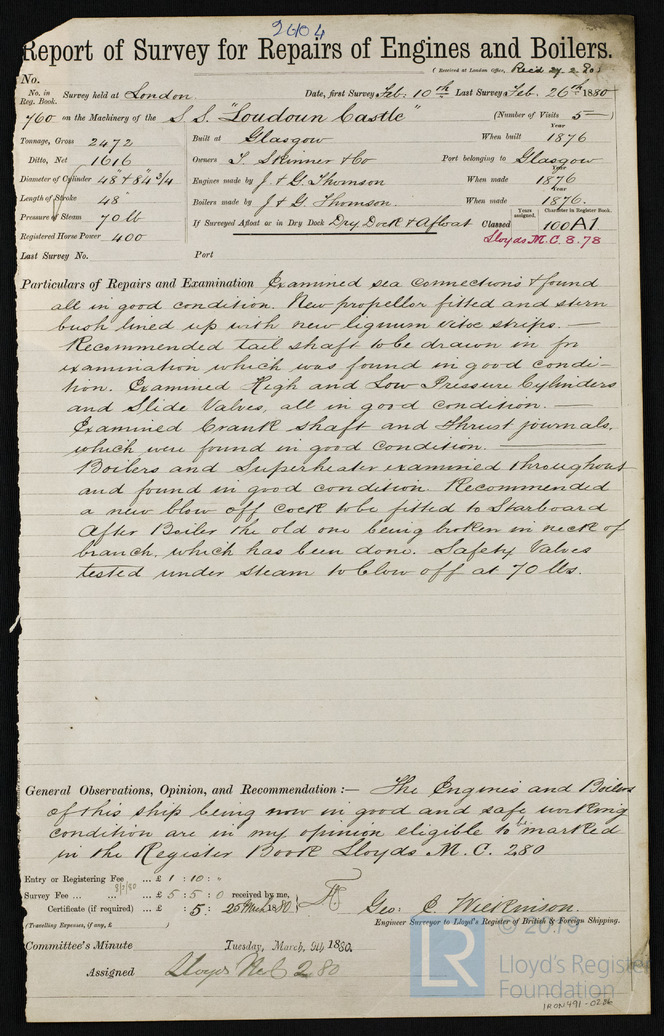 2604
Report of Survey for Repairs of Engines and Boilers.
(Received at London Office, Rec'd 27.2.80)
No.
No. in Reg. Book. Survey held at London Date, first Survey Feb. 10th Last Survey Feb. 26th 1880
760 on the Machinery of the S.S. "Loudoun Castle" (Number of Visits 5)
Tonnage, Gross 2472 Built at Glasgow When built Year 1876
Ditto, Net 1616 Owners T. Skinner & Co Port belonging to Glasgow
Diameter of Cylinder 48" & 84 3/4 Engines made by J. & G. Thomson When made Year 1876
Length of Stroke 48" Boilers made by J. & G. Thomson. When made Year 1876.
Pressure of Steam 70 lb If Surveyed Afloat or in Dry Dock Dry Dock & Afloat Classed Years assigned. Character in Register Book. 100A1
Registered Horse Power 400 Lloyds M.C. 8.78
Last Survey No. Port
Particulars of Repairs and Examination Examined sea connections & found
all in good condition. New propeller fitted and stern
bush lined up with new lignum vitoe strips. —
Recommended tail shaft to be drawn in for
examination which was found in good condi-
tion. Examined High and Low Pressure Cylinders
and Slide Valves, all in good condition. —
Examined Crank shaft and Thrust journals,
which were found in good condition.
Boilers and Superheater examined throughout
and found in good condition Recommended
a new blow off cock to be fitted to Starboard
After Boiler the old one being broken in neck of
branch, which has been done. Safety Valves
tested under steam to blow off at 70 lbs.
General Observations, Opinion, and Recommendation :— The Engines and Boilers
of this ship being now in good and safe working
condition are in my opinion eligible to marked
in the Register Book Lloyds M.C. 2.80
Entry or Registering Fee ... £ 1 : 10 : "
Survey Fee ... ... £ 5 : 5 : 0 received by me,
Certificate (if required) ... £ : 5 : 25 Mch 1880
(Travelling Expenses, if any, £ )
Geo: C. Wilkinson.
Engineer Surveyor to Lloyd's Register of British & Foreign Shipping.
Committee's Minute Tuesday, March, 9th 1880.
Assigned Lloyds M.C. 2 80
© 2019
LR Lloyd's Register
Foundation
IRON491-0286